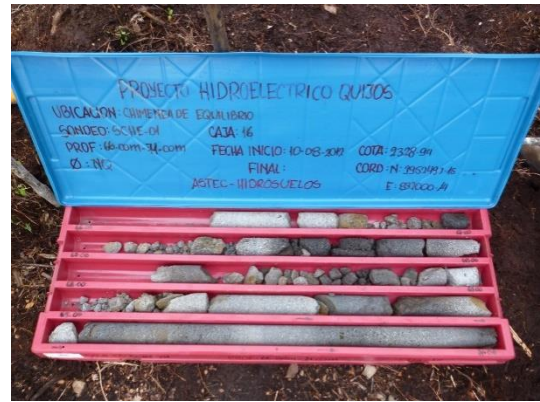 PROYECTO HIDROELECTRICO QUIJOS
UBICACION: CHIMENEA DE EQUILIBRIO
SONDEO: SCHE-01 CAJA: 16
PROF: FECHA INICIO: 10-08-2010 COTA: 2328.94
Ø: NQ FINAL: CORD: N:
ASTEC-HIDROSUELOS E: